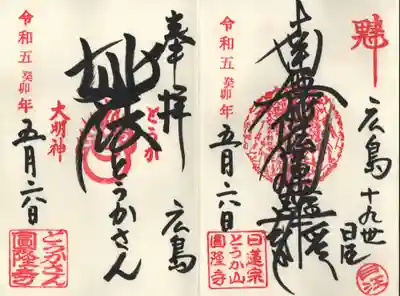 広島
十九世
南無妙法蓮華経
令和五癸卯年
五月六日
日蓮宗
とうか山
圓隆寺
奉拝
広島
とうか
妙法
とうかさん
大明神
令和五癸卯年
五月六日
とうかさん
圓隆寺